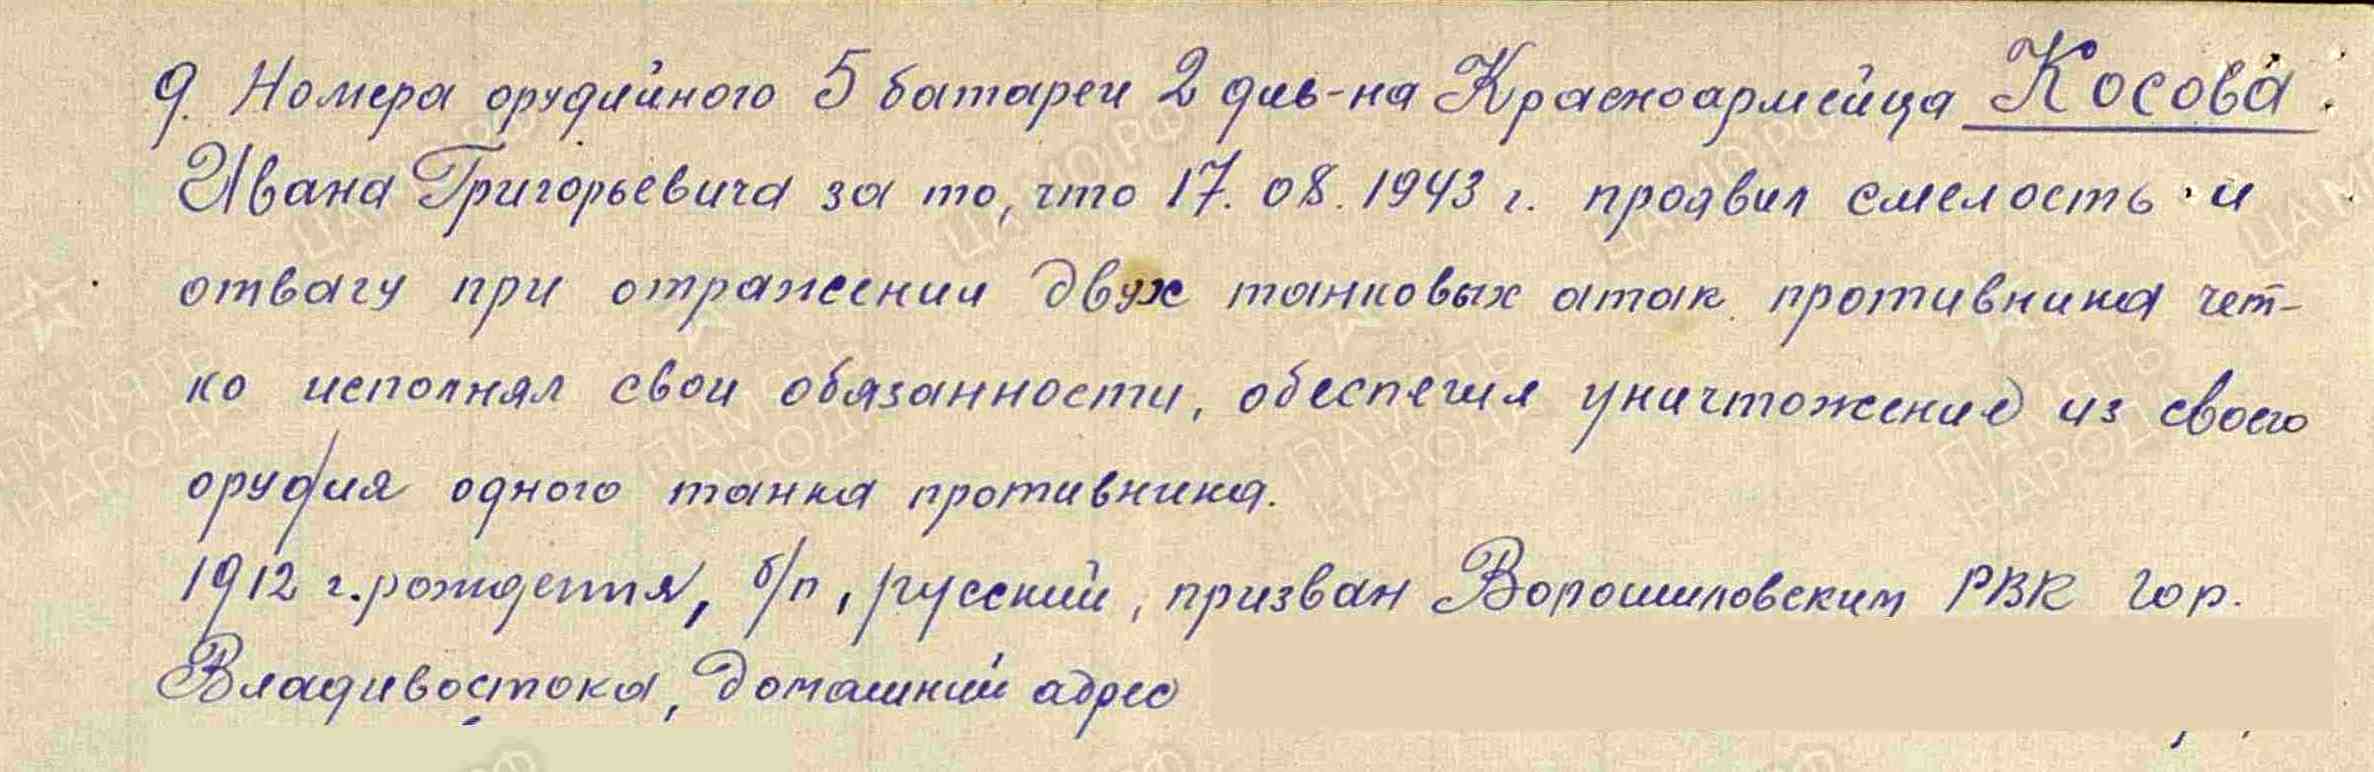 9. Номера орудийного 5 батареи 2 див-на Красноармейца Косова
Ивана Григорьевича за то, что 17.08.1943 г. проявил смелость и
отвагу при отражении двух танковых атак противника чет-
ко исполнял свои обязанности, обеспечил уничтожение из своего
орудия одного танка противника.
1912 г. рождения, б/п, русский, призван Ворошиловским РВК гор.
Владивостока, домашний адрес